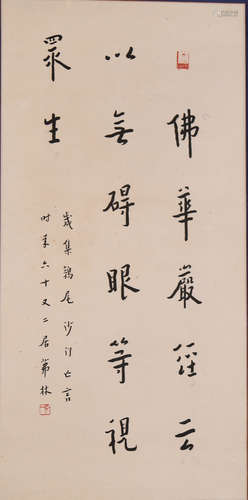 佛華嚴經云
以無碍眼等視
眾生
歲集鶉尾沙門亡言
时年六十又二居茀林